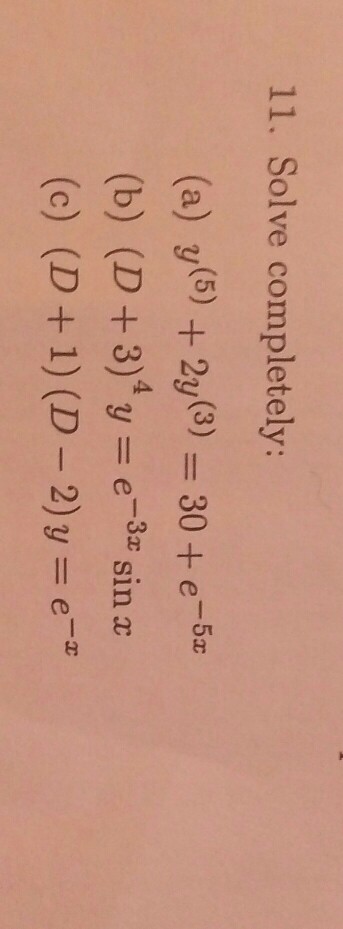 11. Solve completely:
(a) y⁽⁵⁾ + 2y⁽³⁾ = 30 + e⁻⁵ˣ
(b) (D + 3)⁴ y = e⁻³ˣ sin x
(c) (D + 1)(D − 2)y = e⁻ˣ